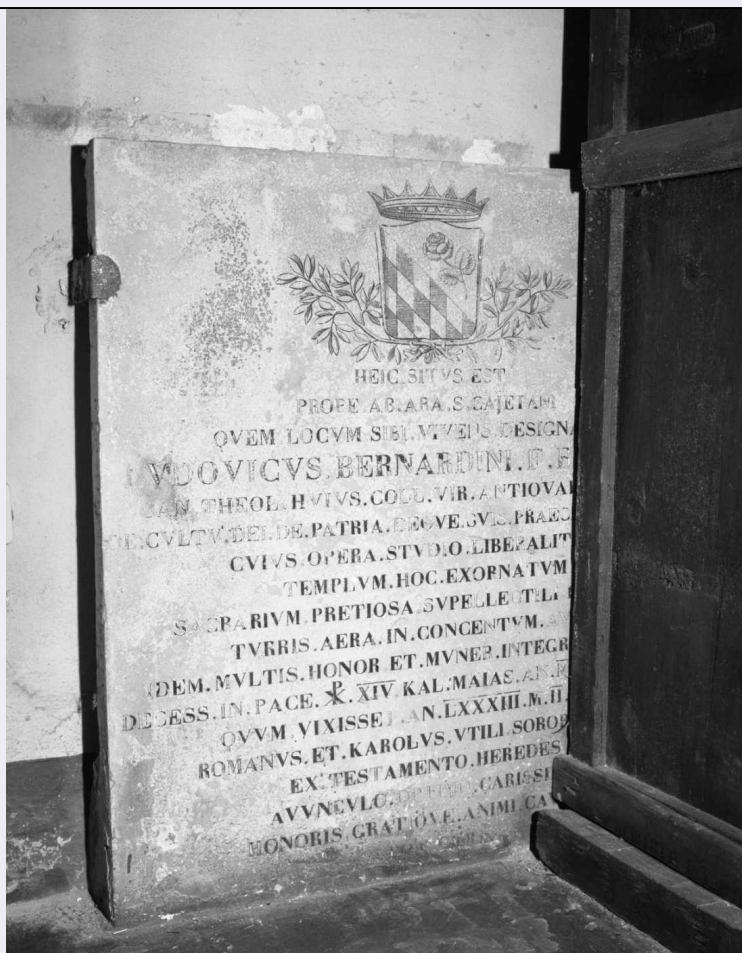 HEIC.SITVS.EST
PROPE.AB.ARA.S.CAIETANI
QVEM.LOCVM.SIBI.VIVENS.DESIGNA
LVDOVICVS.BERNARDINI.F.
THEOL.HVIVS.COLL.VIR.ANTIQVAE
CVLTV.DEI.DE.PATRIA.DEQVE.SVIS.PRAEC
CVIVS.OPERA.STVDIO.LIBERALIT
TEMPLVM.HOC.EXORNATVM
SACRARIVM.PRETIOSA.SVPELLECTILI
TVRRIS.AERA.IN.CONCENTVM.
IDEM.MVLTIS.HONOR.ET.MVNER.INTEGR
DECESS.IN.PACE.☧.XIV.KAL.MAIAS.AN.
QVVM.VIXISSET.AN.LXXXIIII.M.II.
ROMANVS.ET.KAROLVS.VTILI.SOROR
EX.TESTAMENTO.HEREDES
AVVNCVLO.OPTIMO.CARISSI
HONORIS.GRATIQVE.ANIMI.CA